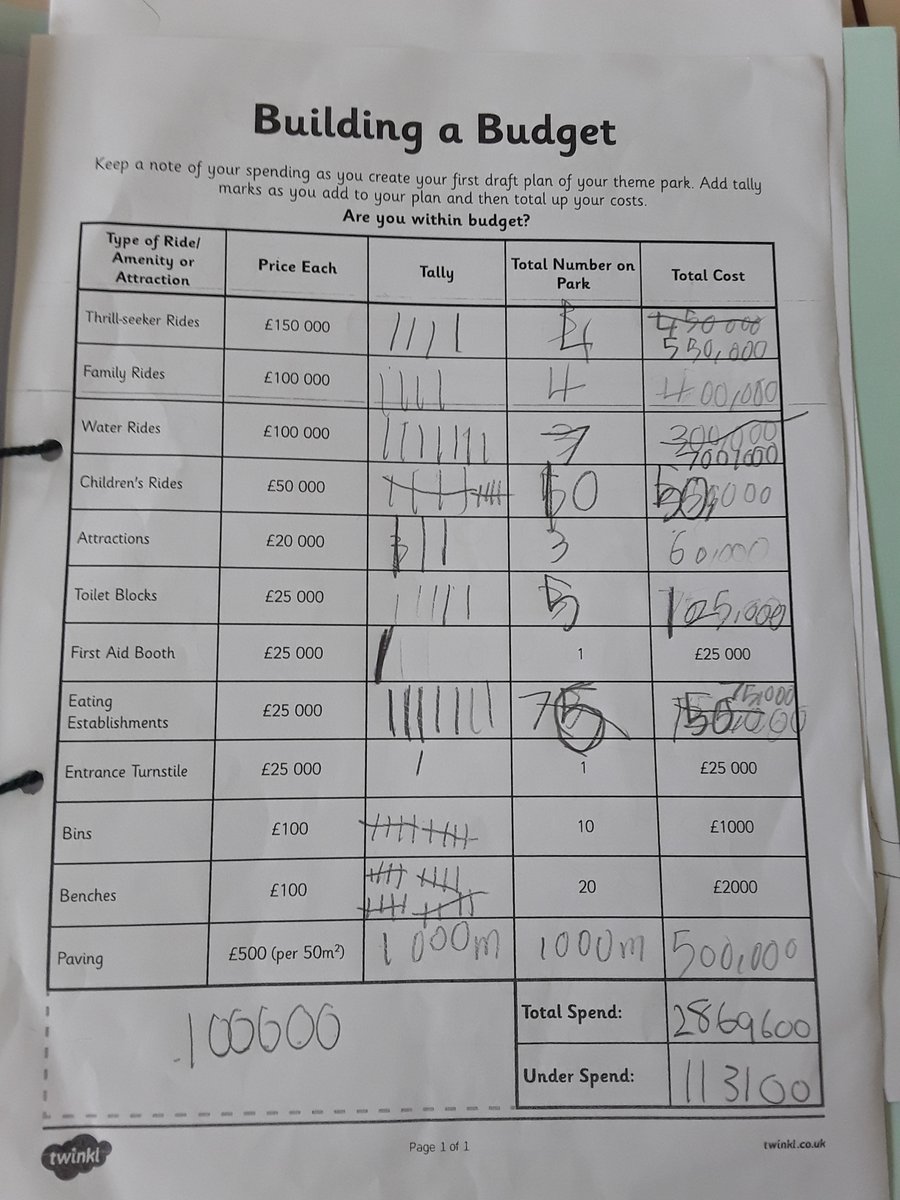 Building a Budget
Keep a note of your spending as you create your first draft plan of your theme park. Add tally
marks as you add to your plan and then total up your costs.
Are you within budget?
Type of Ride/
Amenity or
Attraction
Price Each
Tally
Total Number on
Park
Total Cost
Thrill-seeker Rides £150 000 4 450000
550,000
Family Rides £100 000 4 400,000
Water Rides £100 000 7 300,000
700,000
Children's Rides £50 000
Attractions £20 000 3 60,000
Toilet Blocks £25 000 5 125,000
First Aid Booth £25 000 1 £25 000
Eating
Establishments
£25 000 75,000
Entrance Turnstile £25 000 1 £25 000
Bins £100 10 £1000
Benches £100 20 £2000
Paving £500 (per 50m²) 1000m 1000m 500,000
100000
Total Spend: 2869600
Under Spend: 113100
twinkl
Page 1 of 1
twinkl.co.uk